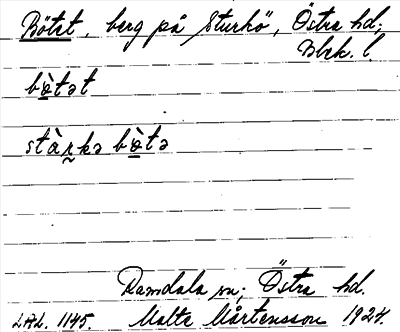 Bötet, berg på Sturkö, Östra hd;
Blek. l.
bø̀tət
stàrkə bø̀tə
Ramdala sn; Östra hd.
LAL. 1145. Malte Mårtensson 1924.